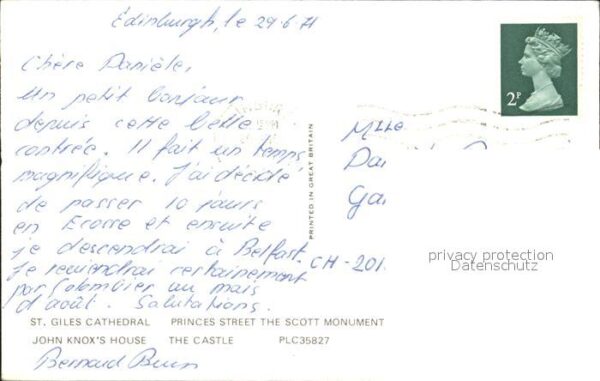 Edinburgh, le 29.6.71
Chère Danièle,
Un petit bonjour
depuis cette belle
contrée. Il fait un temps
magnifique. J'ai décidé
de passer 10 jours
en Ecosse et ensuite
je descendrai à Belfast.
Je reviendrai certainement
par Colombier au mois
d'août. Salutations.
Bernard
2P
Mlle
CH-201
PRINTED IN GREAT BRITAIN
privacy protection
Datenschutz
ST. GILES CATHEDRAL PRINCES STREET THE SCOTT MONUMENT
JOHN KNOX'S HOUSE THE CASTLE PLC35827